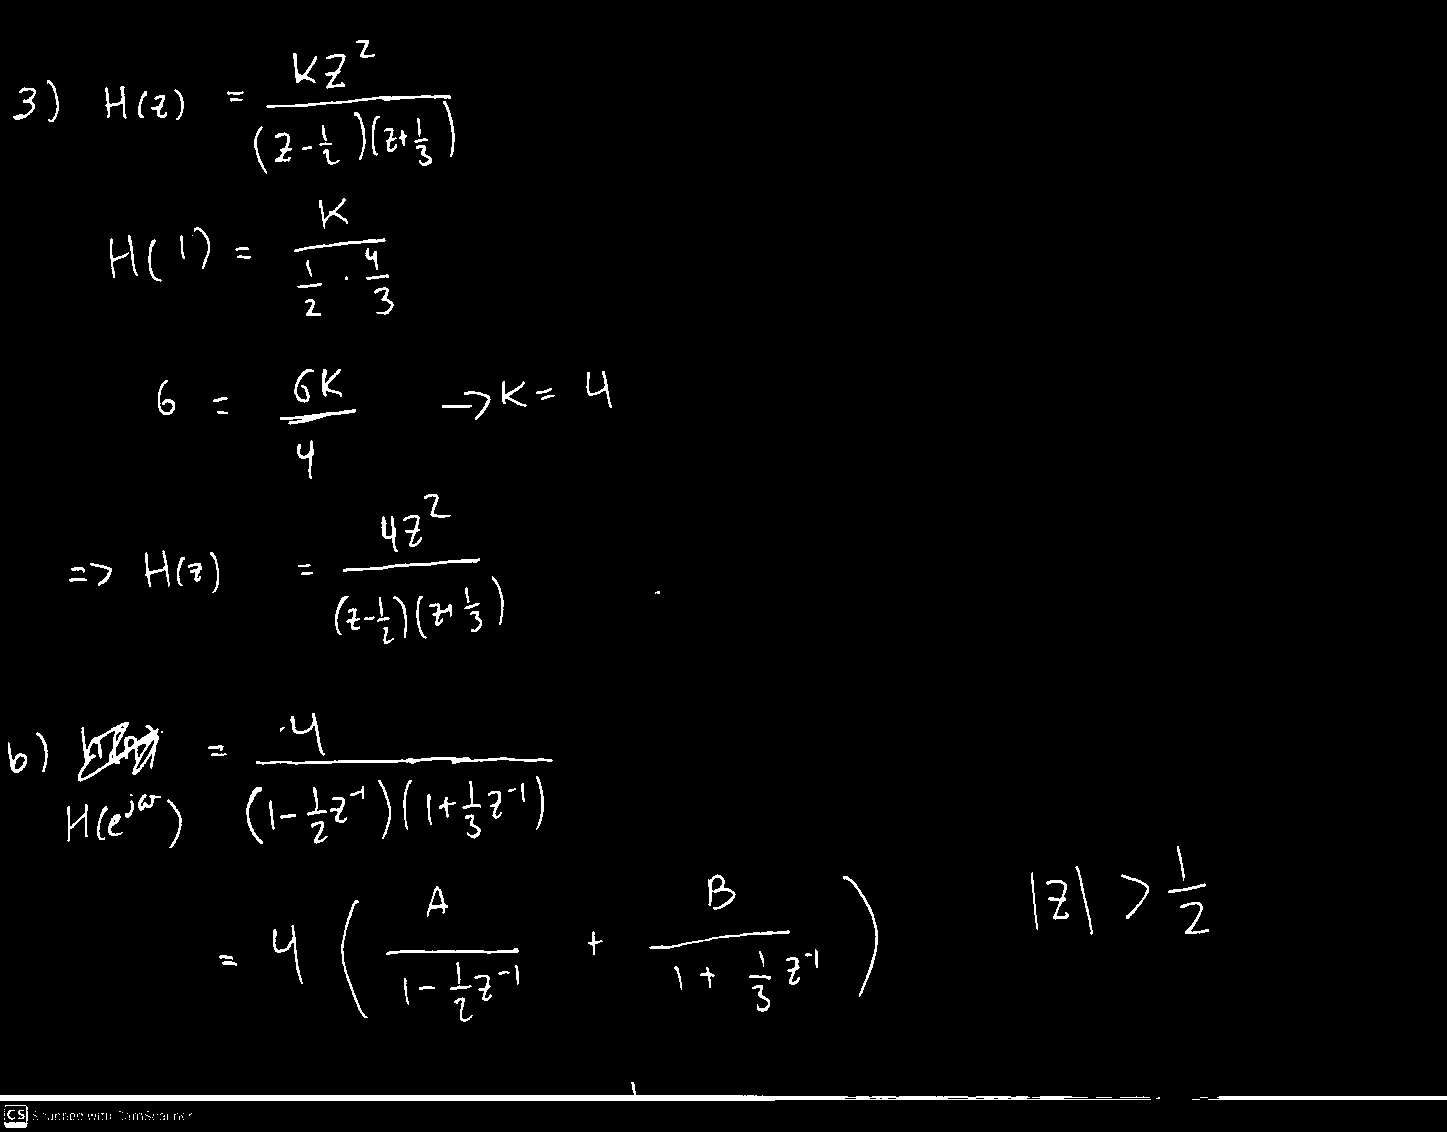 3) H(z) = KZ² / (z - 1/2)(z + 1/3)
H(1) = K / (1/2 · 4/3)
6 = 6K / 4 → K = 4
=> H(z) = 4z² / (z - 1/2)(z + 1/3)
b) H(e^jω) = 4 / (1 - 1/2 z⁻¹)(1 + 1/3 z⁻¹)
= 4 ( A / (1 - 1/2 z⁻¹) + B / (1 + 1/3 z⁻¹) ) |z| > 1/2
CS Scanned with CamScanner